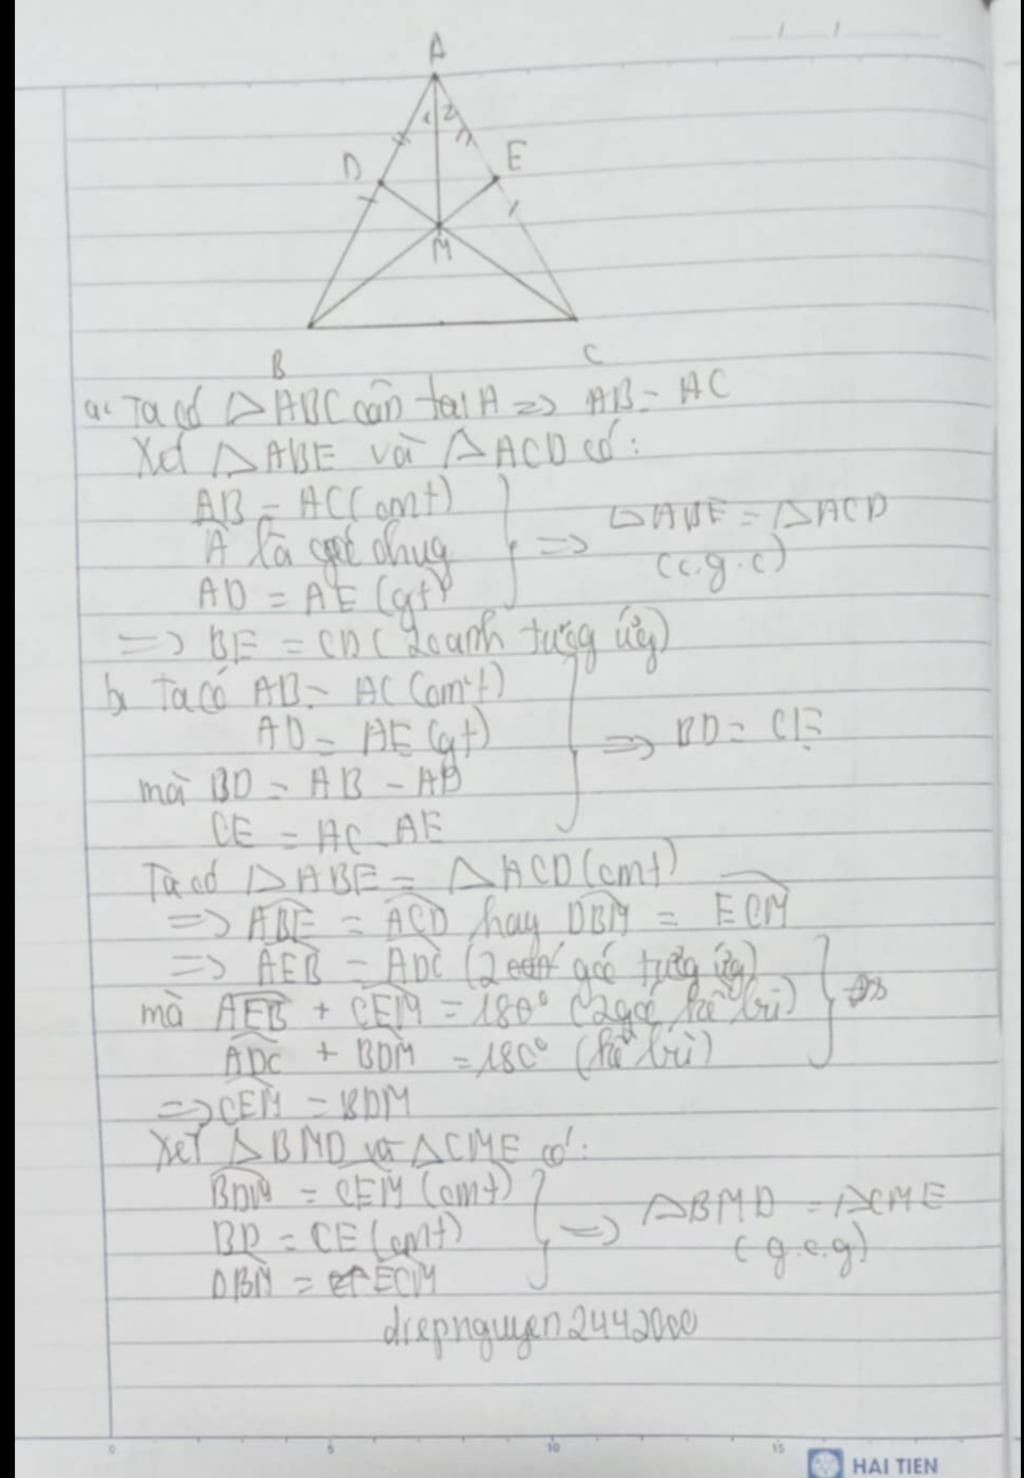 A
1 2
D
E
M
B
C
a. Ta có △ABC cân tại A => AB = AC
Xét △ABE và △ACD có:
AB = AC (cmt)
Â là góc chug
AD = AE (gt)
=> △ABE = △ACD
(c.g.c)
=> BE = CD (2 cạnh tương ứg)
b, Ta có AB = AC (cmt)
AD = AE (gt)
mà BD = AB - AD
CE = AC - AE
=> BD = CE
Ta có △ABE = △ACD (cmt)
=> ABE = ACD hay DBM = ECM
=> AEB = ADC (2 góc tương ứg)
mà AEB + CEM = 180° (2 góc kề bù)
ADC + BDM = 180° (kề bù)
=> CEM = BDM
Xét △BMD và △CME có:
BDM = CEM (cmt)
BD = CE (cmt)
DBM = ECM
=> △BMD = △CME
(g.c.g)
diepnguyen2442000
0 5 10 15
HAI TIEN